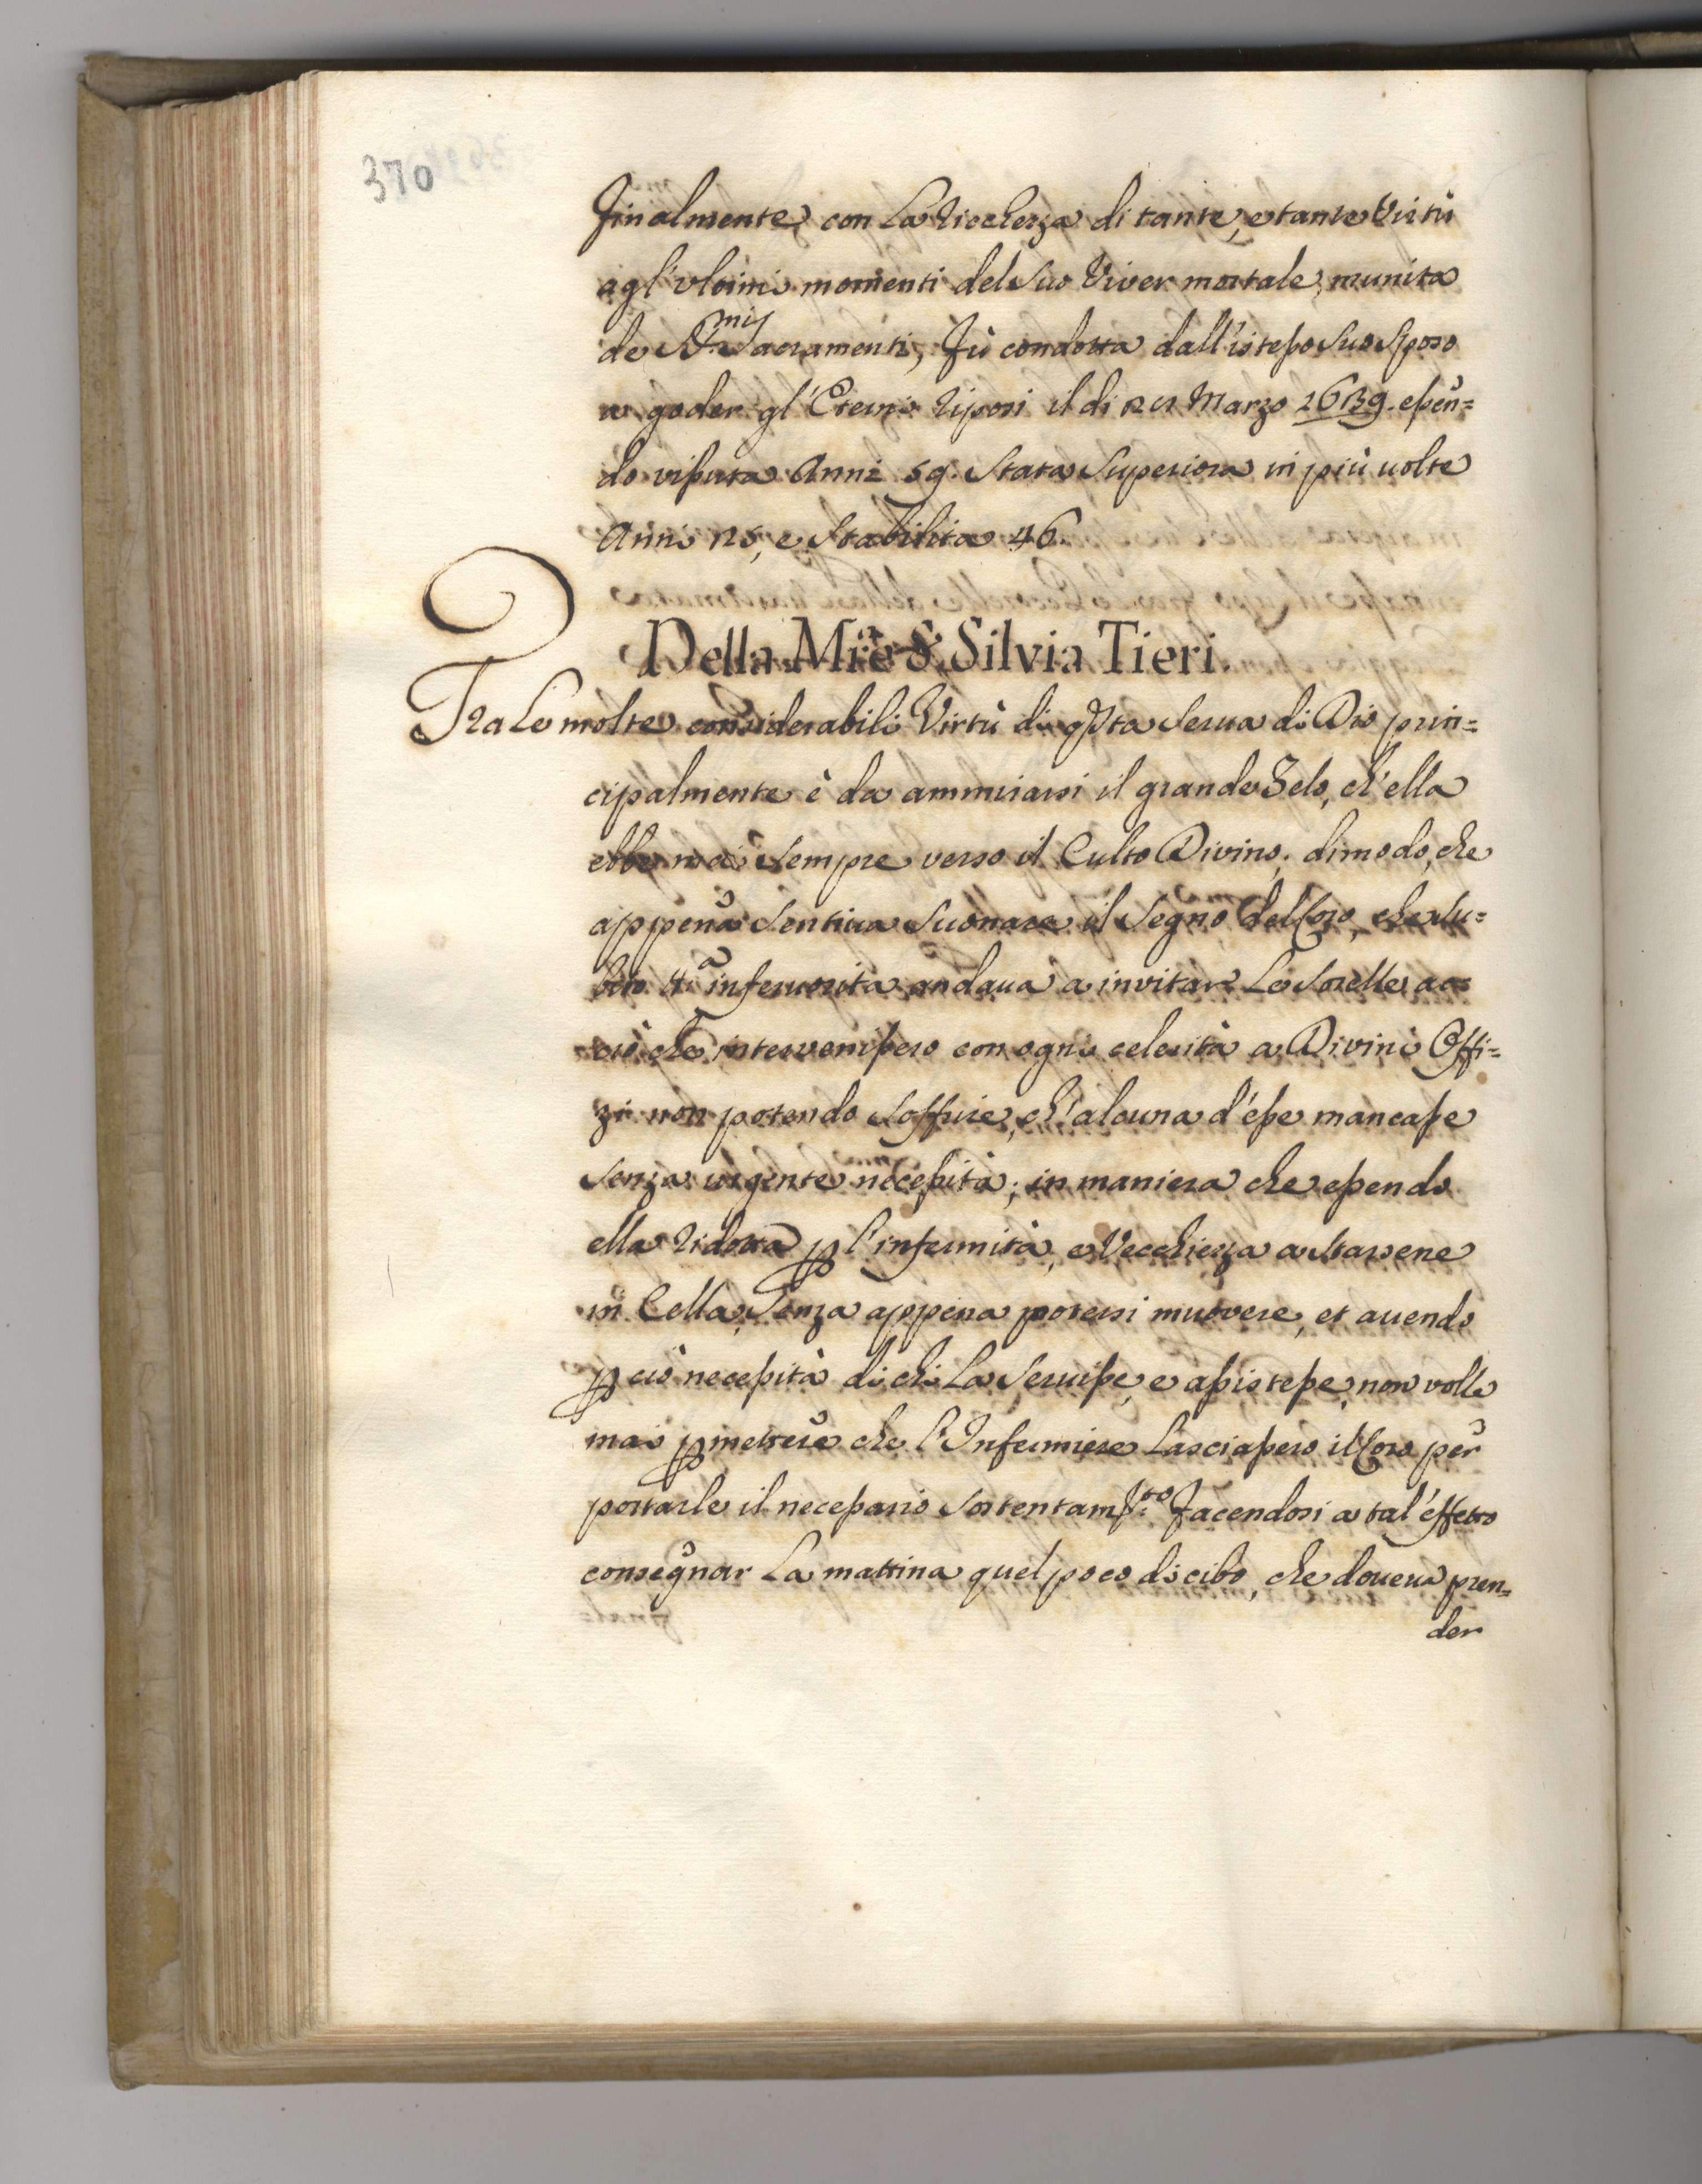 370
Finalmente con La Ricchezza di tante, e tante Virtù
agl'vltimi momenti del suo Viver mortale, munita
de SS.mi Sacramenti, Fù condotta dall'istesso suo Sposo
a goder gl'Eterni Riposi il dì Marzo essen=
do vissuta Anni 59. Stata Superiora in più uolte
Anni e Stabilita 46.
Della Mre S. Silvia Tieri.
Tra Le molte considerabili Virtù di qsta Serua di Dio prin=
cipalmente è da ammirarsi il grande Zelo, ch'ella
ebbe mai sempre verso il Culto Divino, dimodo, che
appena sentiua suonare il Segno del Coro, che su=
bito tta inferuorita andaua a invitare Le Sorelle ac=
ciò che intervenissero con ogni celerità a Divini Offi=
zi non potendo soffrire, ch'alcuna d'esse mancasse
senza urgente necessità; in maniera che essendo
ella ridotta p l'infermità, e Vecchiezza a starsene
in Cella, senza appena potersi muovere, et auendo
p ciò necessità di chi La seruisse, e assistesse, non volle
mai pmettere che l'Infermiere Lasciassero il Coro per
portarle il necessario sostentam.to Facendosi a tal'effetto
consegnar La mattina quel poco di cibo, che doueua pren=
der